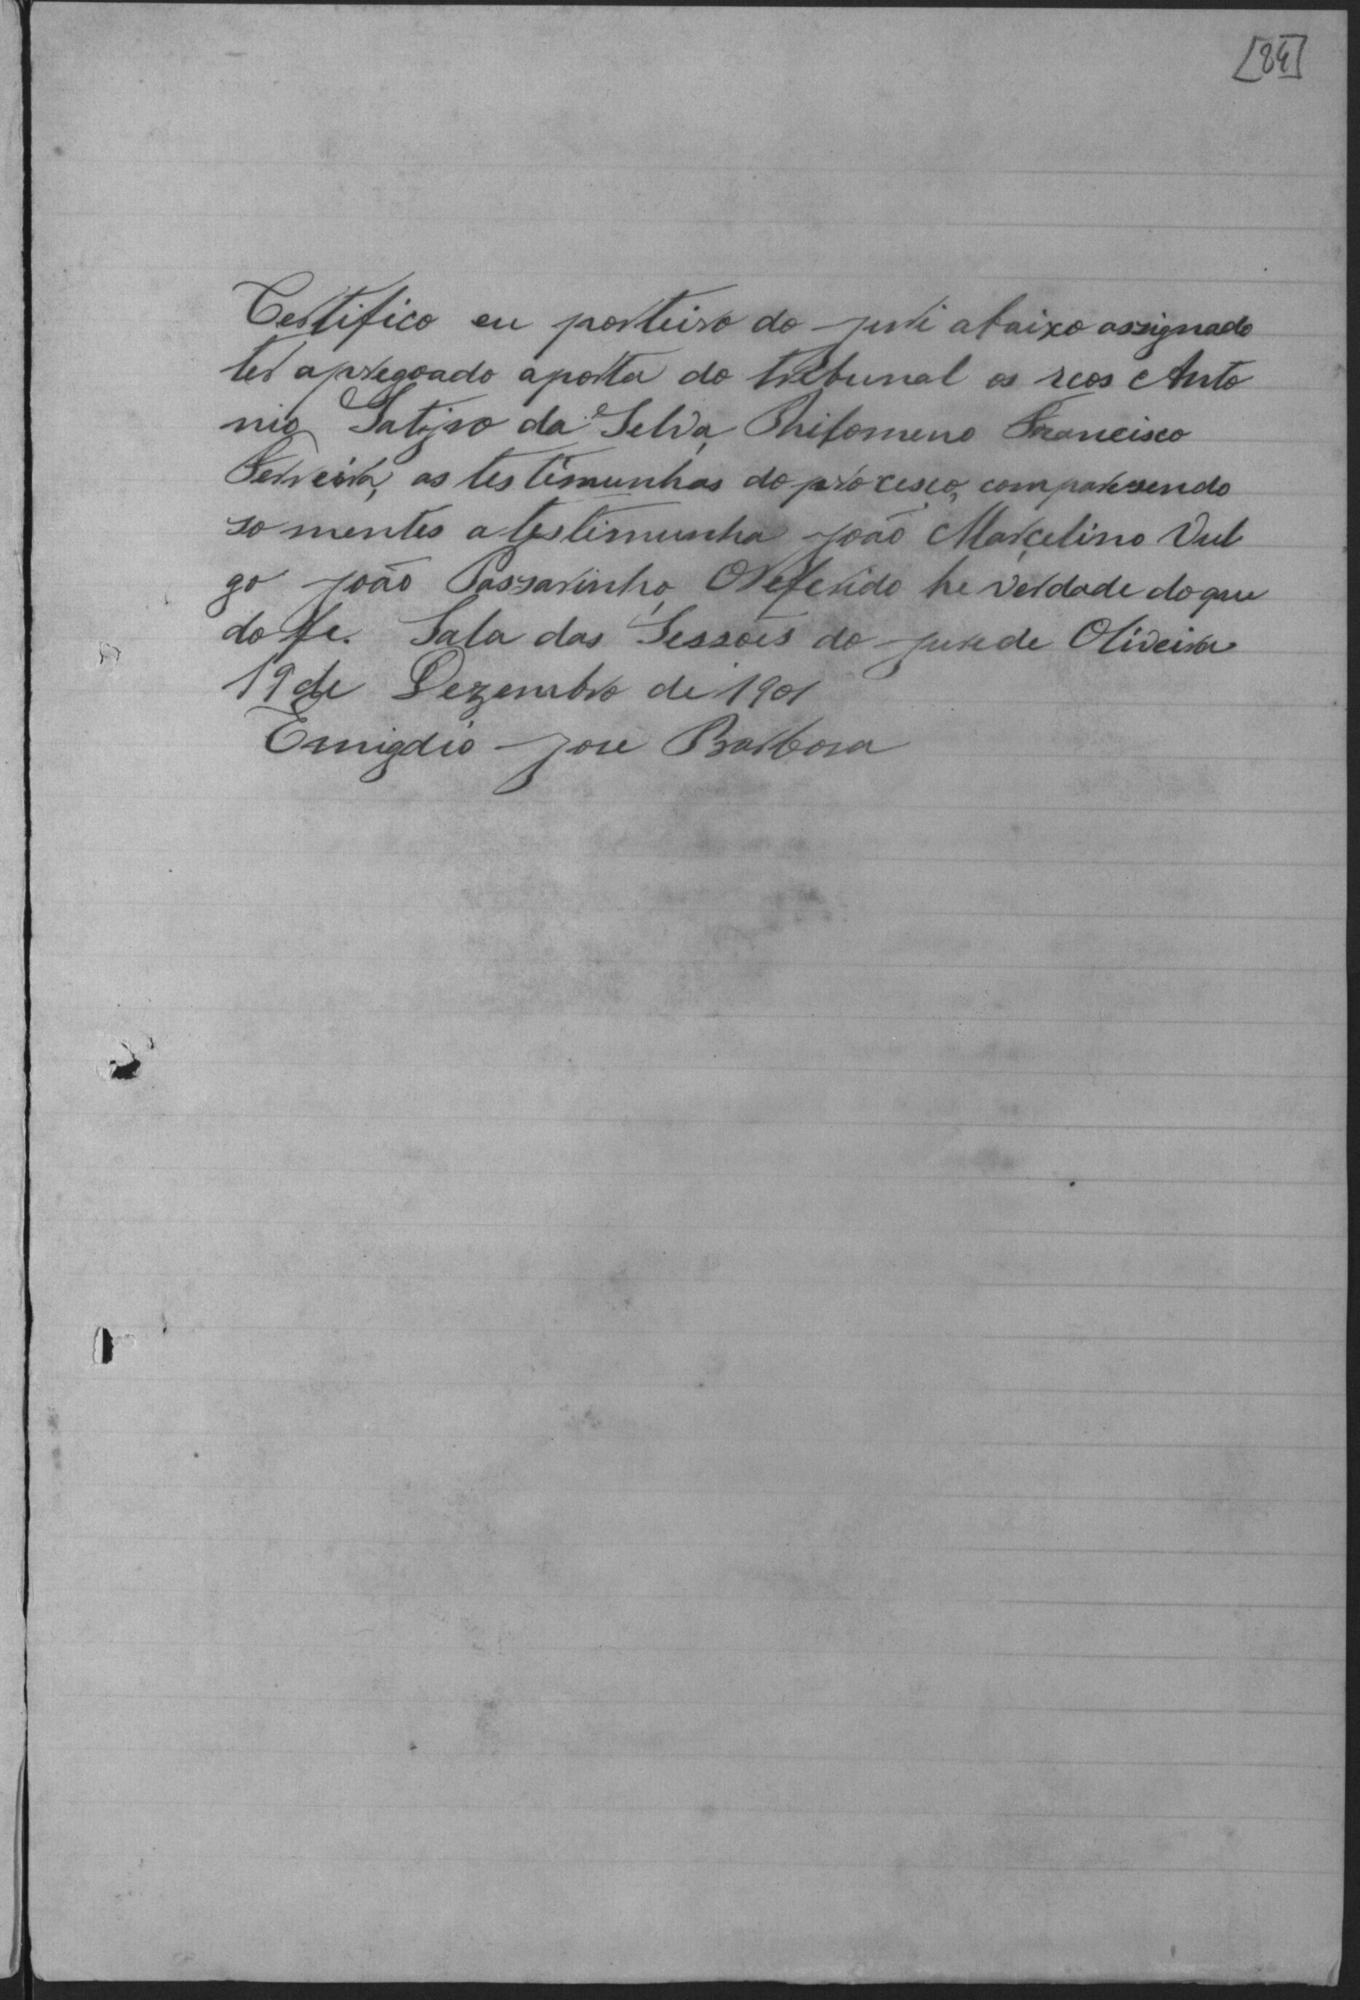 [84]
Certifico eu porteiro do juri abaixo assignado
ter apregoado aporta do tribunal os reos Anto
nio da Selva, Philomeno Francisco
Ferreira, as testimunhas do processo, comparesendo
so mentes a testimunha João Marcelino Vul
go João Passarinho, Oreferido he verdade doque
do fe. Sala das Sessoes do jurede Oliveira
19 de Dezembro de 1901
Emigdio Jose Barbosa